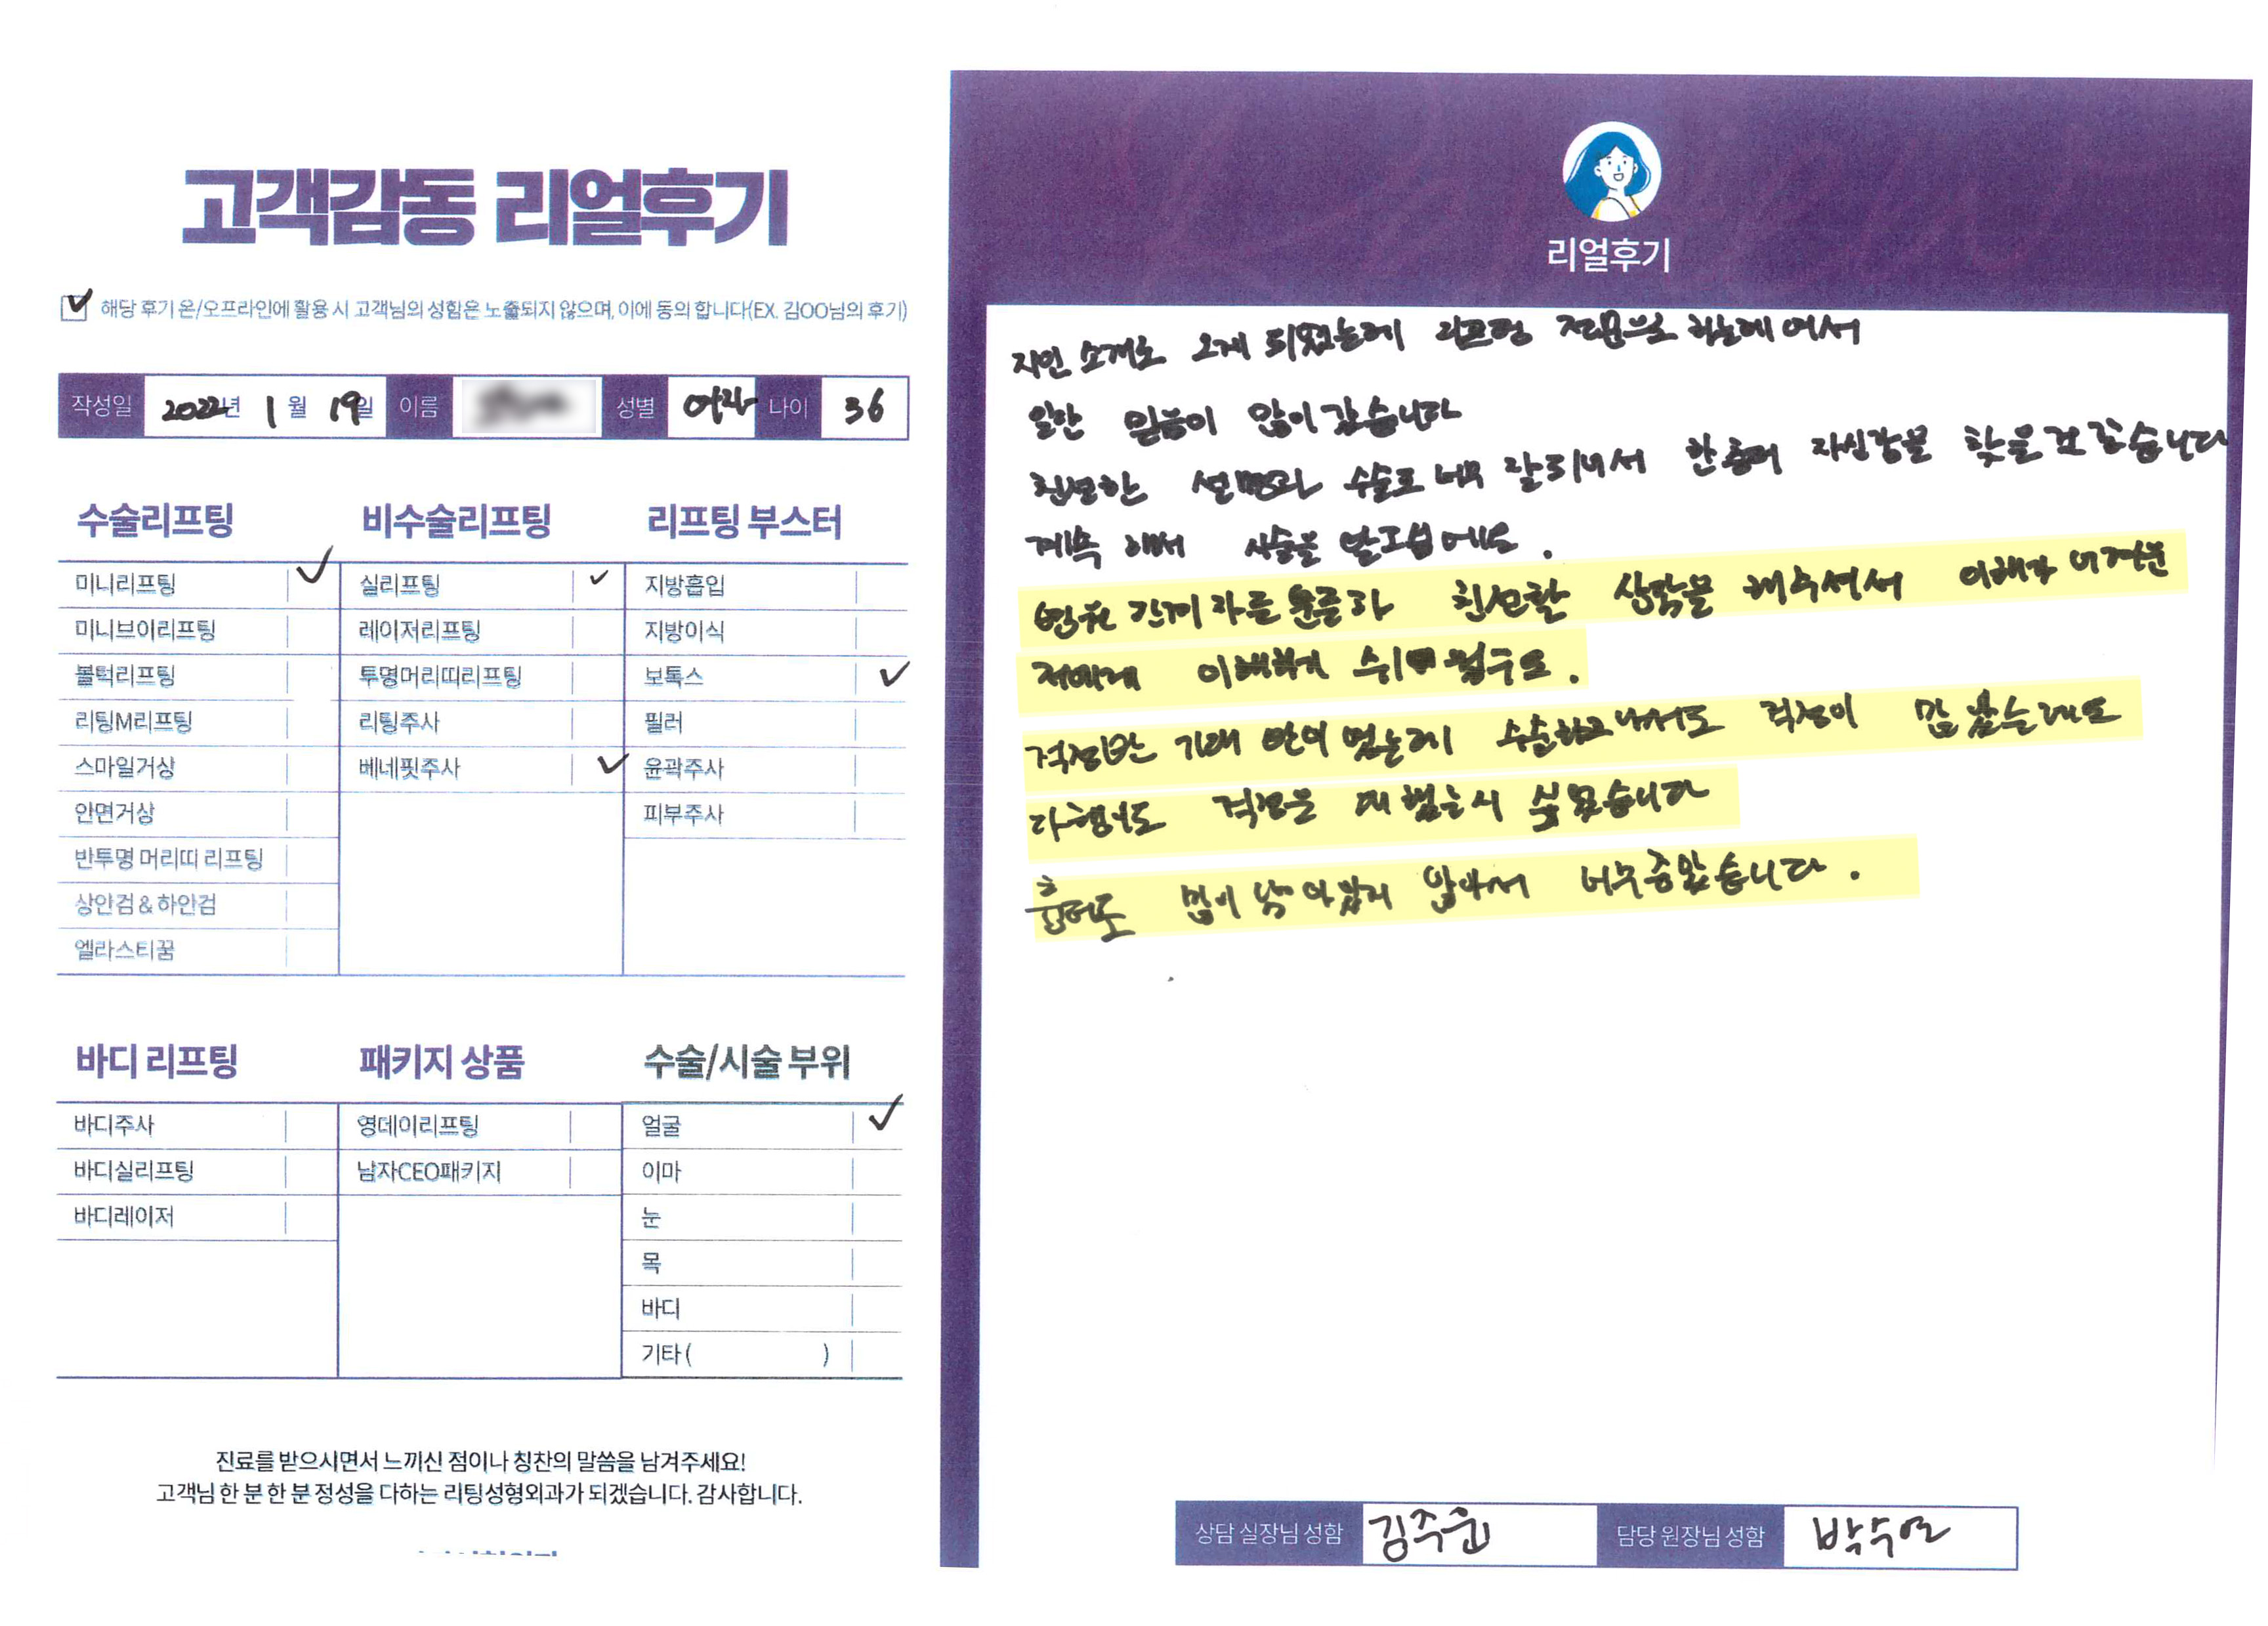 고객감동 리얼후기
해당 후기 온/오프라인에 활용 시 고객님의 성함은 노출되지 않으며, 이에 동의 합니다(EX. 김OO님의 후기)
작성일 2022년 1월 19일 이름 성별 여자 나이 36
수술리프팅
미니리프팅
미니브이리프팅
볼턱리프팅
리팅M리프팅
스마일거상
안면거상
반투명 머리띠 리프팅
상안검 & 하안검
엘라스티꿈
비수술리프팅
실리프팅
레이저리프팅
투명머리띠리프팅
리팅주사
베네핏주사
리프팅 부스터
지방흡입
지방이식
보톡스
필러
윤곽주사
피부주사
바디 리프팅
바디주사
바디실리프팅
바디레이저
패키지 상품
영데이리프팅
남자CEO패키지
수술/시술 부위
얼굴
이마
눈
목
바디
기타 ( )
진료를 받으시면서 느끼신 점이나 칭찬의 말씀을 남겨주세요!
고객님 한 분 한 분 정성을 다하는 리팅성형외과가 되겠습니다. 감사합니다.
리얼후기
지인 소개로 오게 되었는데 리프팅 전문으로 하는데여서
일단 믿음이 많이 갔습니다
친절한 설명과 수술도 너무 잘되어서 한층더 자신감을 찾을것 같습니다
계속 해서 시술을
친절한 상담을 해주셔서 이해가 어려운
저에게 이해하기
걱정반 기대 반이 였는데 수술하고 나서도 걱정이 많았는데도
다행이도 걱정은
흉터도 많이 남아있지 않아서 너무좋았습니다.
상담 실장님 성함 김주원 담당 원장님 성함